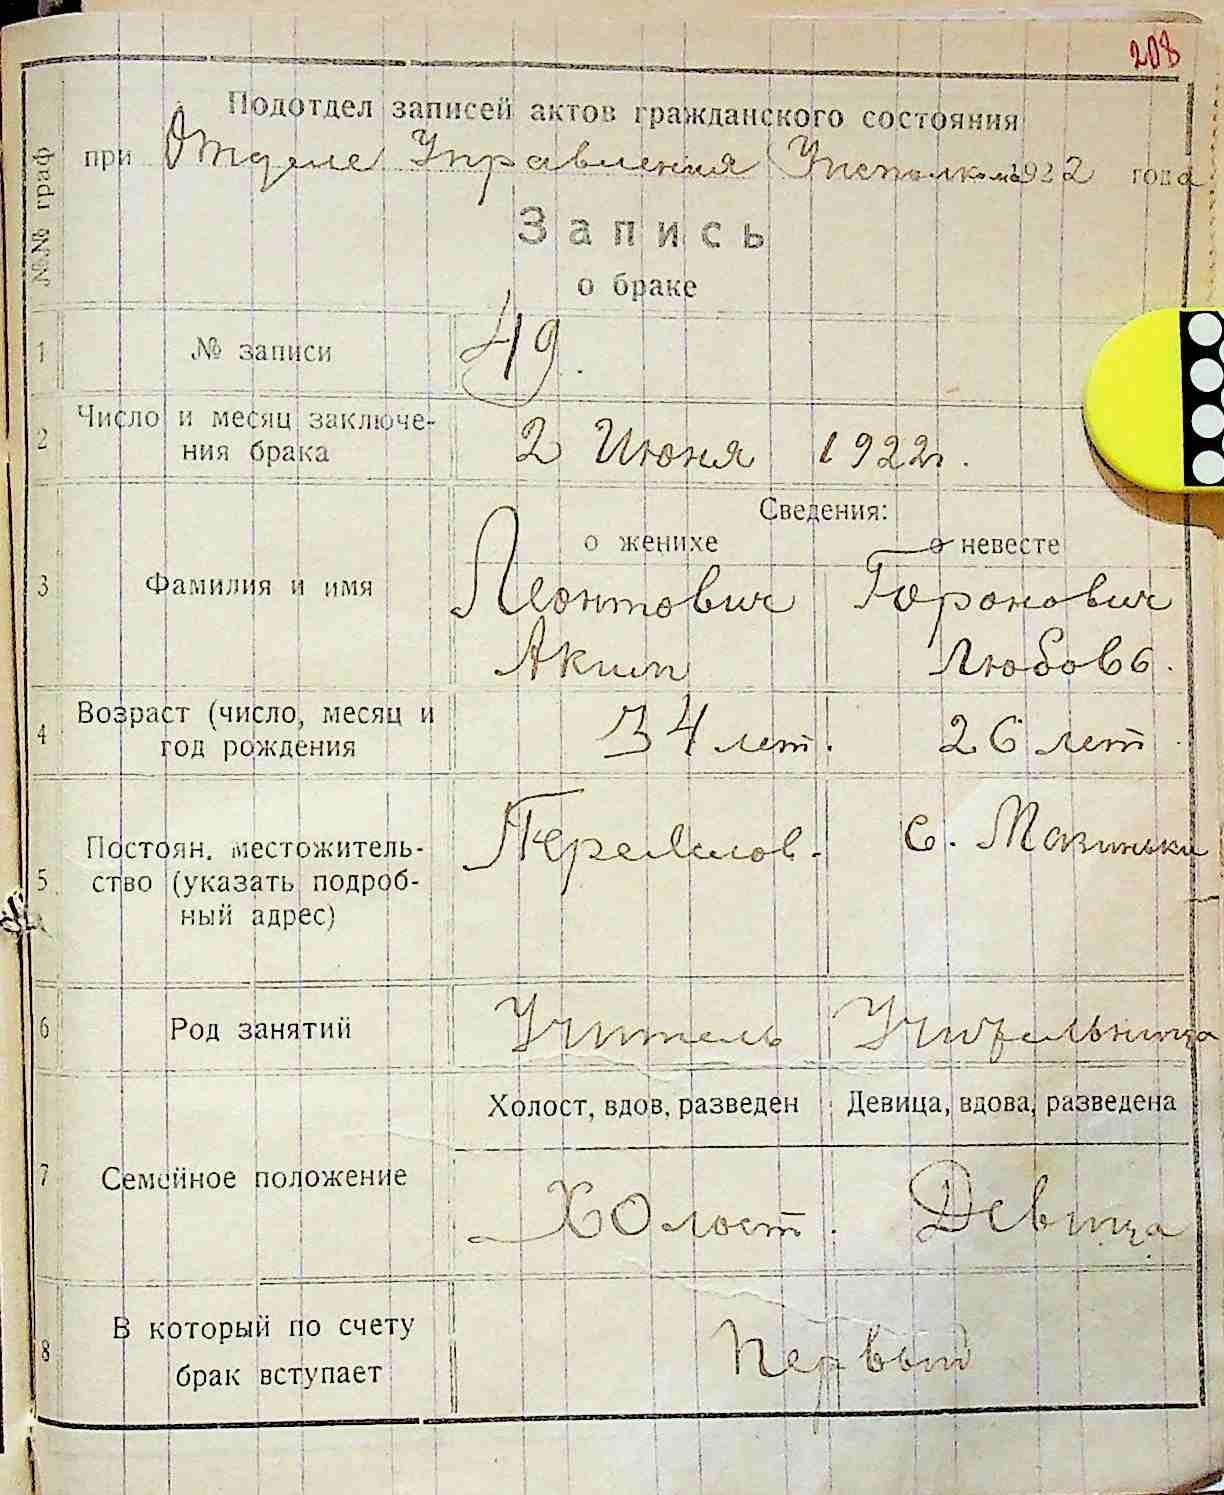 208
Подотдел записей актов гражданского состояния
при Отделе Управления Исполкома 1922 года
№№ граф
Запись
о браке
1 № записи 49.
2 Число и месяц заключе-
ния брака 2 Июня 1922 г.
Сведения:
о женихе о невесте
3 Фамилия и имя Леонтович Горонович
Аким Любовь.
4 Возраст (число, месяц и
год рождения 34 лет. 26 лет
5 Постоян. местожитель-
ство (указать подроб-
ный адрес) с.
6 Род занятий Учитель Учительница
Холост, вдов, разведен Девица, вдова, разведена
7 Семейное положение Холост. Девица
8 В который по счету
брак вступает Первый